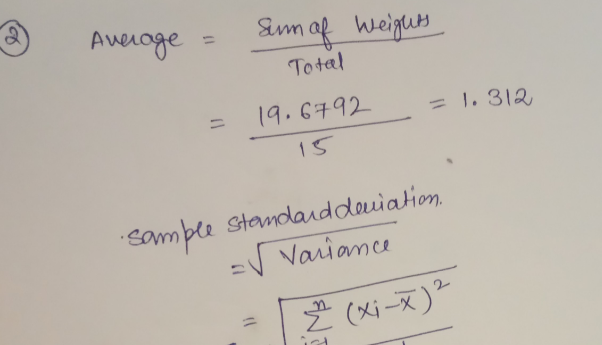 2 Average = Sum of Weights
Total
= 19.6792 = 1.312
15
.sample standard deviation.
=√ Variance
= √ n Σ (xi-x̄)²
i=1